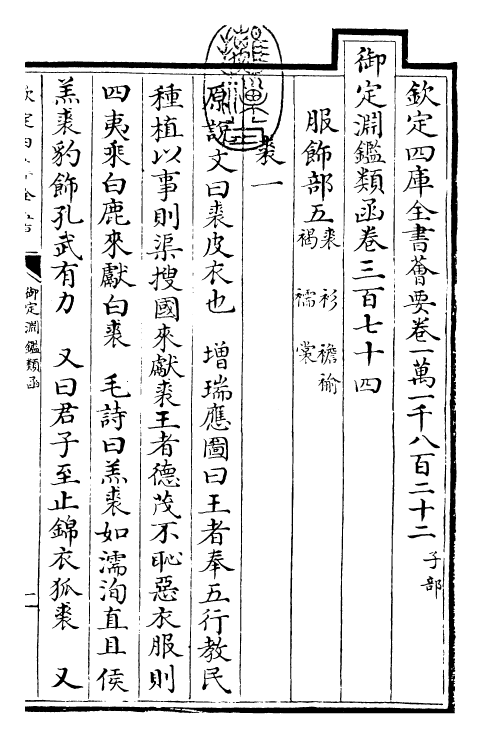 欽定四庫全書薈要卷一萬一千八百二十二 子部
御定淵鑑類函卷三百七十四
服飾部五 裘 衫 襜褕 褐 襦 裳
裘一
原說文曰裘皮衣也 增瑞應圖曰王者奉五行教民
種植以事則渠搜國來獻裘王者德茂不恥惡衣服則
四夷乘白鹿來獻白裘 毛詩曰羔裘如濡洵直且侯
羔裘豹飾孔武有力 又曰君子至止錦衣狐裘 又
御定淵鑑類函